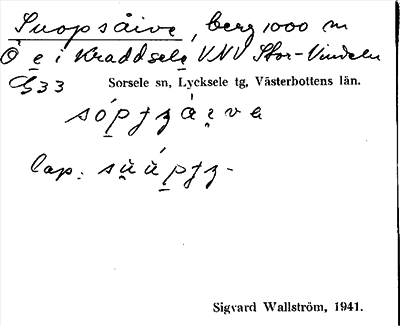 Suopsåive, berg 1000 m
Ö e i Kraddsele VNV Stor-Vindeln
G33
Sorsele sn, Lycksele tg, Västerbottens län.
lap.
Sigvard Wallström, 1941.